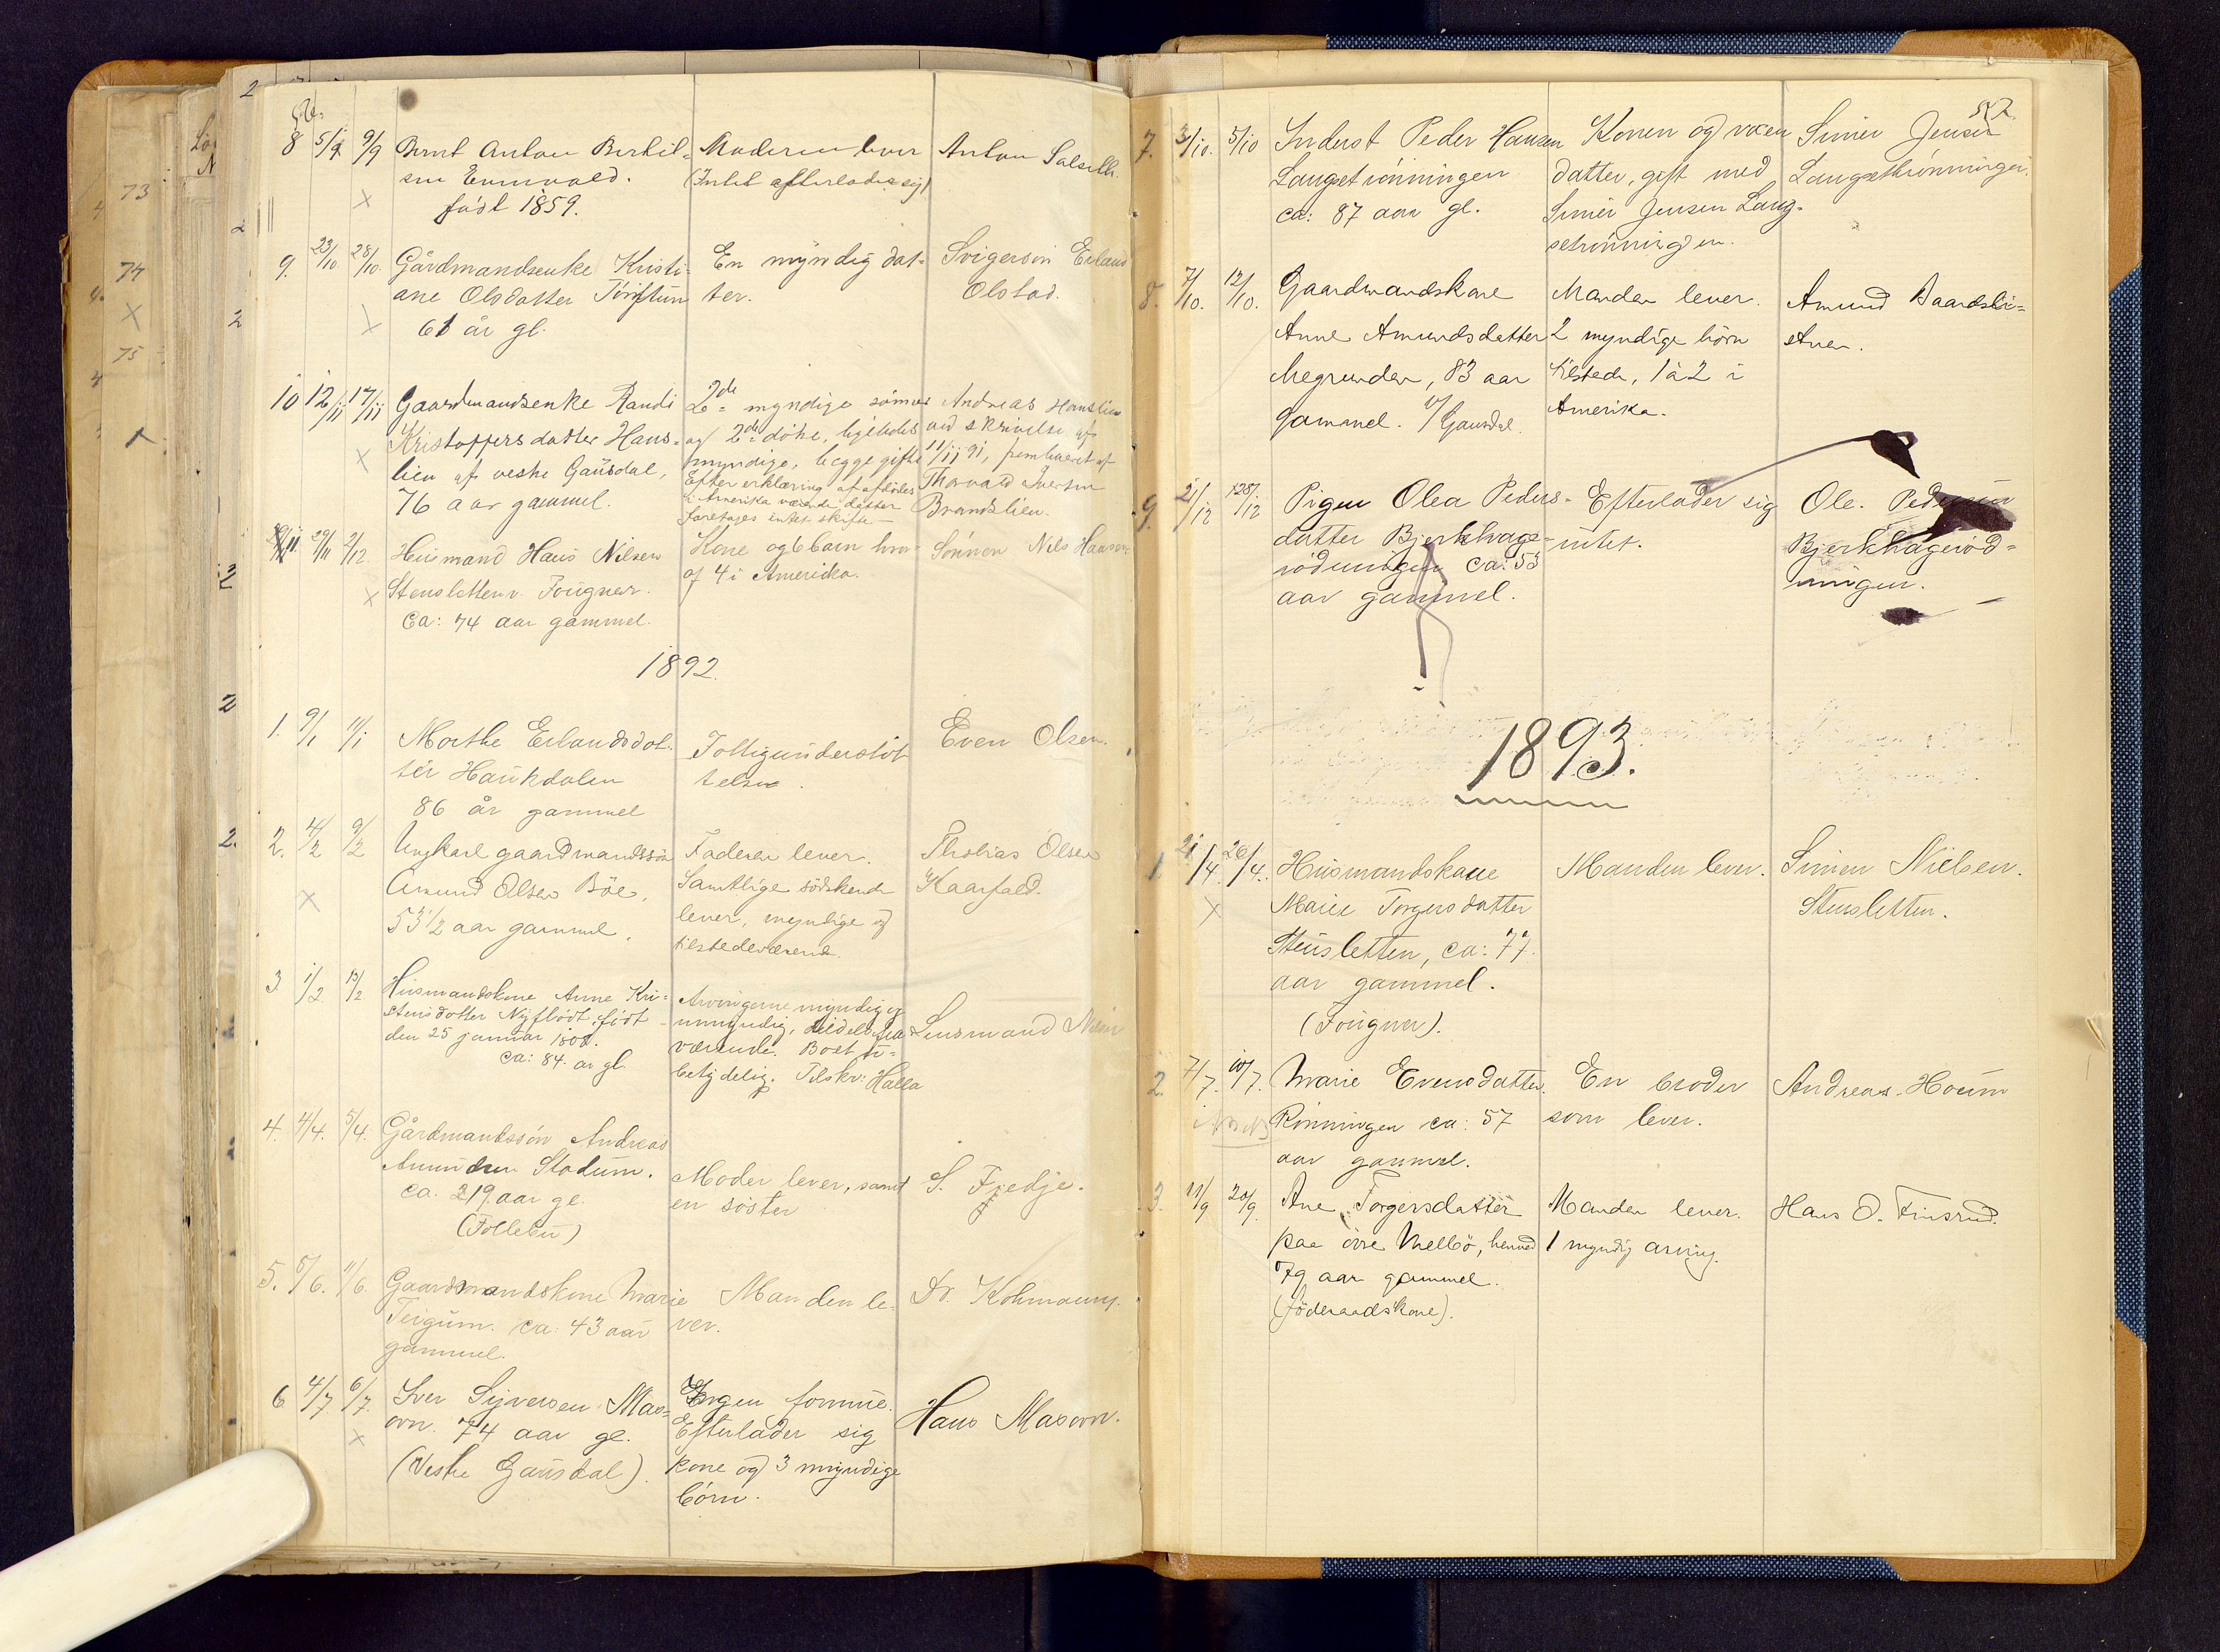 8 5/9 9/9 Bernt Anton Bertil= Moderen lever Anton Salselh.
sen Enevold. (Intet efterlader sig)
født 1859.
9. 23/10 28/10. Gårdmandsenke Kristi= En myndig dat= Svigersøn Erland
ane Olsdatter ter. Olstad.
61 år gl.
10 12/11 17/11 Gaardmandsenke Randi 2de myndige sønner Andreas Hanslien
Kristoffersdatter Hans= og 2de døtre, ligeledes ved skrivelse af
lien af vestre Gausdal, myndige, begge gifte 11/11 91, frembaaret af
76 aar gammel. Efter erklæring af afdødes Thorvald Iversen
i Amerika værende datter Brandslien.
foretages intet skifte
11 29/11 2/12. Husmand Hans Nilsen Kone og 6 barn hvor= Sønnen Nils Hansen
Stensletten v. Fougner. af 4 i Amerika.
Ca: 74 aar gammel.
1892.
1. 9/1 11/1 Marthe Erlandsdat= Fattigunderstøt Even Olsen.
ter Haukdalen telse.
86 år gammel
2. 4/2 9/2 Ungkarl gaardmandssøn Faderen lever. Thobias Olsen
Amund Olsen Böe, Samtlige södskende Kaarfald.
53 1/2 aar gammel. lever, myndige og
tilstedeværende.
3 1/2 13/2 Husmandskone Anne Kri= Arvingerne myndig og
stensdatter Nyflødt, født umyndig, tildels fra Lensmand
den 25 januar 1808. værende. Boet u=
ca: 84. ar gl betydelig. Tilskr: Halla
4. 4/4. 5/4. Gårdmandssön Andreas
Amundsen Stadum. Moder lever, samt S. Fjedje.
ca. 219 aar gl. en søster
(Follebu)
5. 6/6. 11/6. Gaardmandskone Marie Manden le= Dr. Kohmann.
Teigum. ca. 43 aar ver.
gammel.
6 4/7 6/7. Iver Syversen Mas= Ingen formue. Hans Masovn.
ovn. 74 aar gl. Efterlader sig
(Vestre Gausdal). kone og 3 myndige
börn.
7. 3/10. 5/10 Inderst Peder Hansen Konen og voxen Simen Jensen
Langsetrönningen datter, gift med Langsethrønningen.
ca: 87 aar gl. Simen Jensen Lang=
setrönningen.
8. 7/10. 12/10. Gaardmandskone Manden lever. Amund Baardsli=
Anne Amundsdatter 2 myndige börn stuen.
Megrunden, 83 aar tilstede, 1 à 2 i
gammel. V/Gausdal Amerika.
9. 21/12 28/12 Pigen Olea Peders= Efterlader sig Ole. Pedersen
datter Bjerkhage= intet. Bjerkhageröd=
rödningen ca: 53 ningen.
aar gammel.
1893.
1. 21/4. 26/4. Husmandskone Manden lever. Simen Nielsen.
Marie Torgersdatter Stensletten.
Stensletten, ca: 77
aar gammel.
(Fougner).
2. 7/7. 10/7. Marie Evensdatter En broder Andreas Hoem
Rönningen ca: 57 som lever.
aar gammel.
3. 11/9 20/9. Ane Torgersdatter Manden lever. Hans O. Finsrud.
paa övre Mellbö, henved 1 myndig arving.
79 aar gammel.
(föderaadskone).